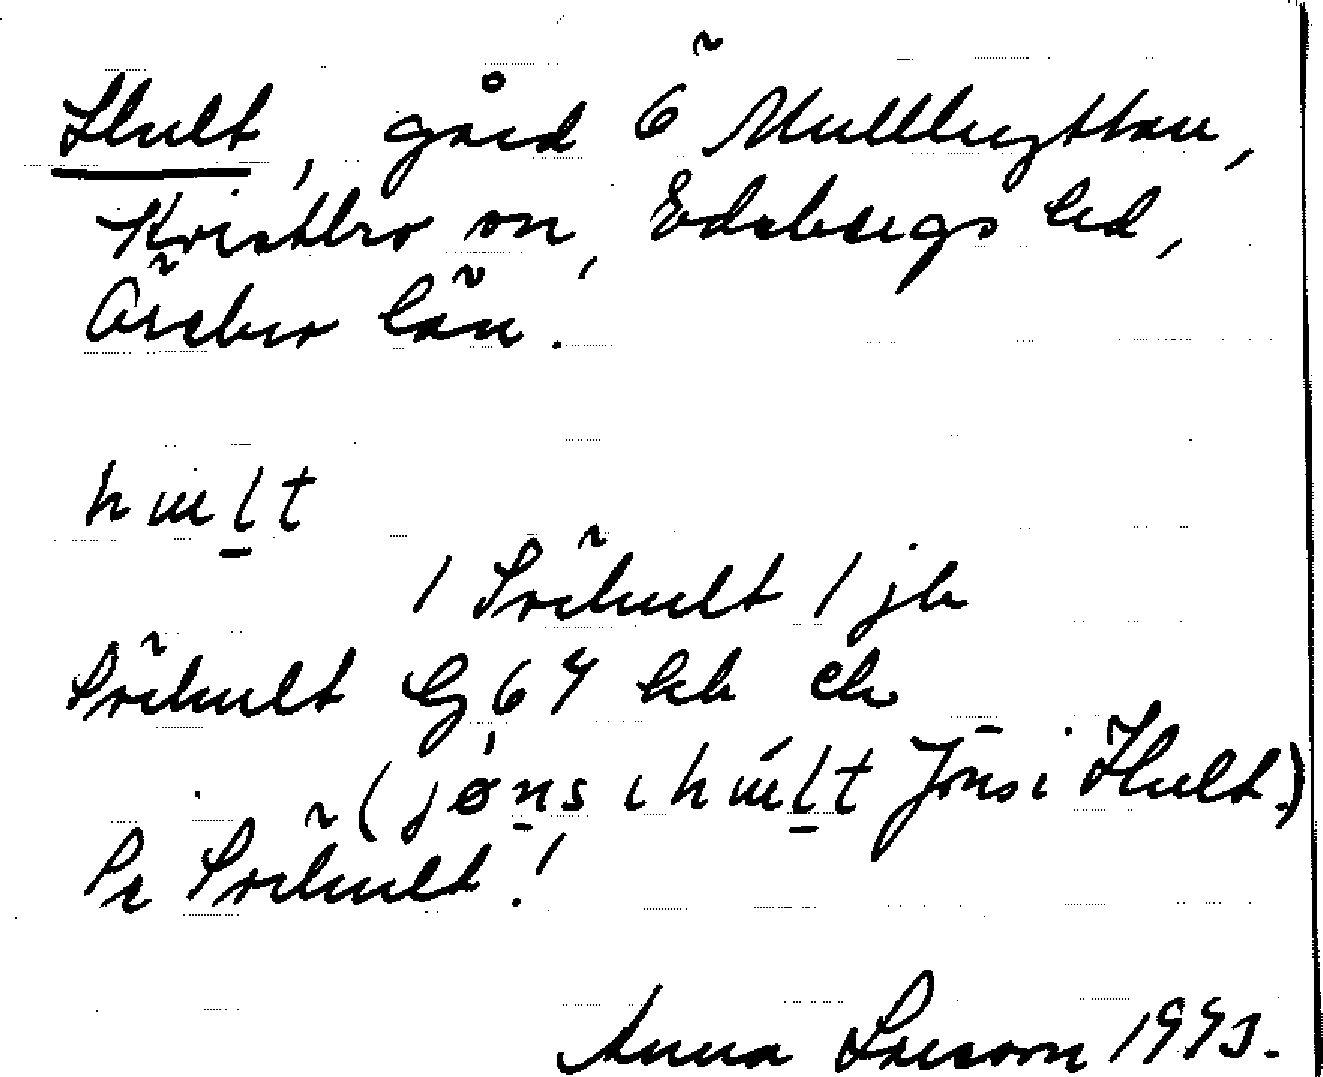 Hult, gård Ö Mullhyttan,
Kvistbro sn, Edsbergs hd,
Örebro län.
hɯlt
/ Fröhult / jb
Fröhult G 67 hb eb
(jøns i hɯ́lt Jöns i Hult.)
På Fröhult!
Anna Larsson 1993.